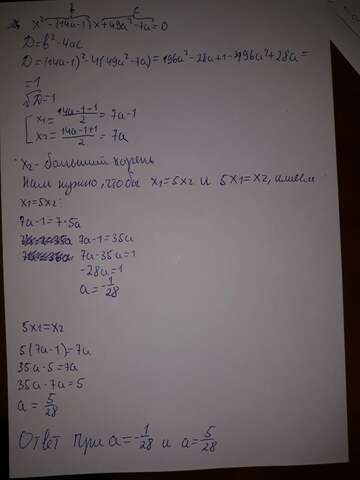 b c
x² - (14a-1)x + 49a² - 7a = 0
D = b² - 4ac
D = (14a-1)² - 4(49a² - 7a) = 196a² - 28a + 1 - 196a² + 28a =
= 1
√D = 1
[ x1 = (14a-1-1)/2 = 7a-1
x2 = (14a-1+1)/2 = 7a
x2 - больший корень
Нам нужно, чтобы x1 = 5x2 и 5x1 = x2, имеем
x1 = 5x2:
7a-1 = 7·5a
7a-1 = 35a
7a-35a = 1
-28a = 1
a = -1/28
5x1 = x2
5(7a-1) = 7a
35a-5 = 7a
35a-7a = 5
a = 5/28
Ответ при a = -1/28 и a = 5/28